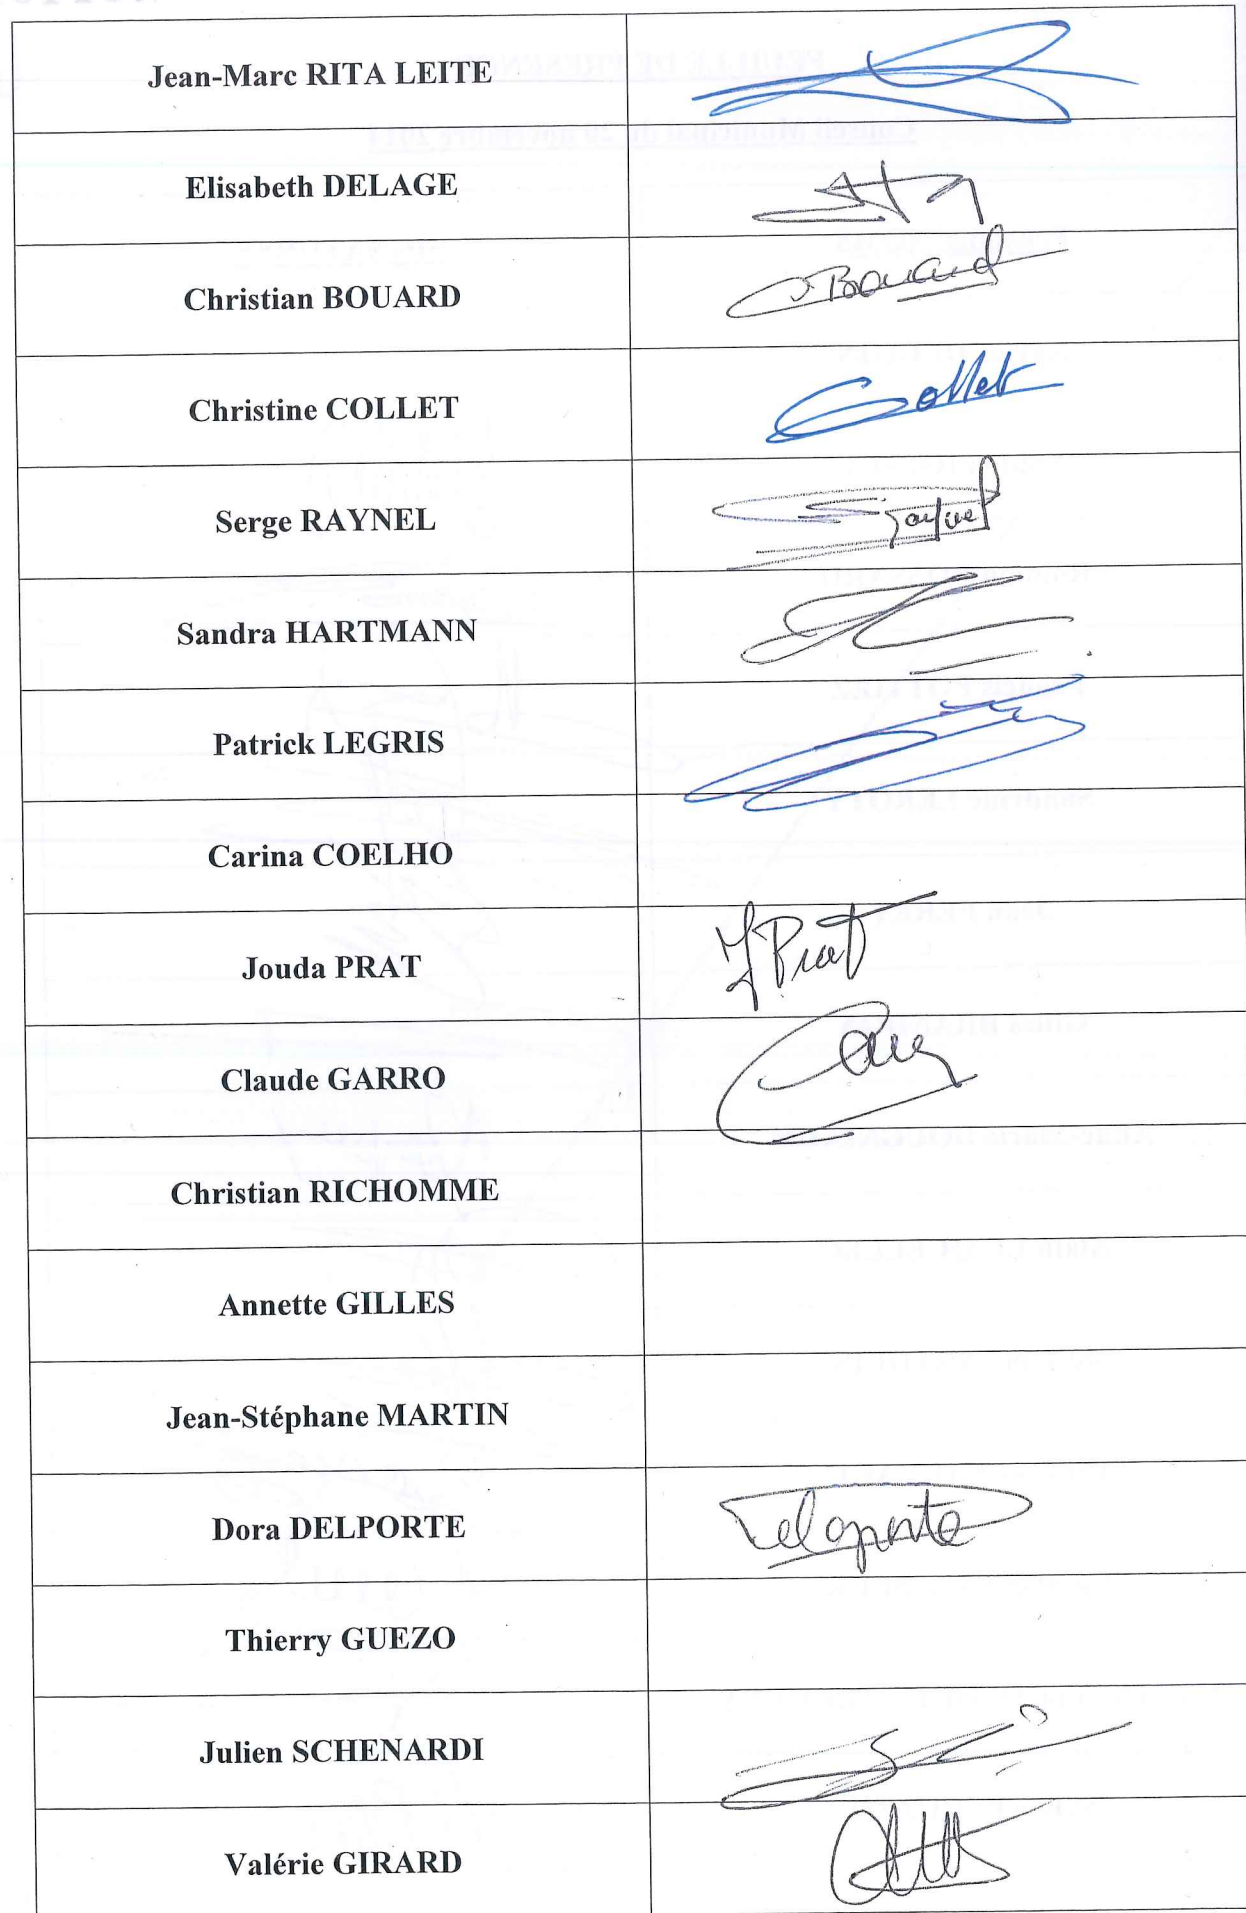 Jean-Marc RITA LEITE
Elisabeth DELAGE
Christian BOUARD
Bouard
Christine COLLET
Collet
Serge RAYNEL
Sandra HARTMANN
Patrick LEGRIS
Carina COELHO
Jouda PRAT
J Prat
Claude GARRO
Christian RICHOMME
Annette GILLES
Jean-Stéphane MARTIN
Dora DELPORTE
Delaporte
Thierry GUEZO
Julien SCHENARDI
Valérie GIRARD